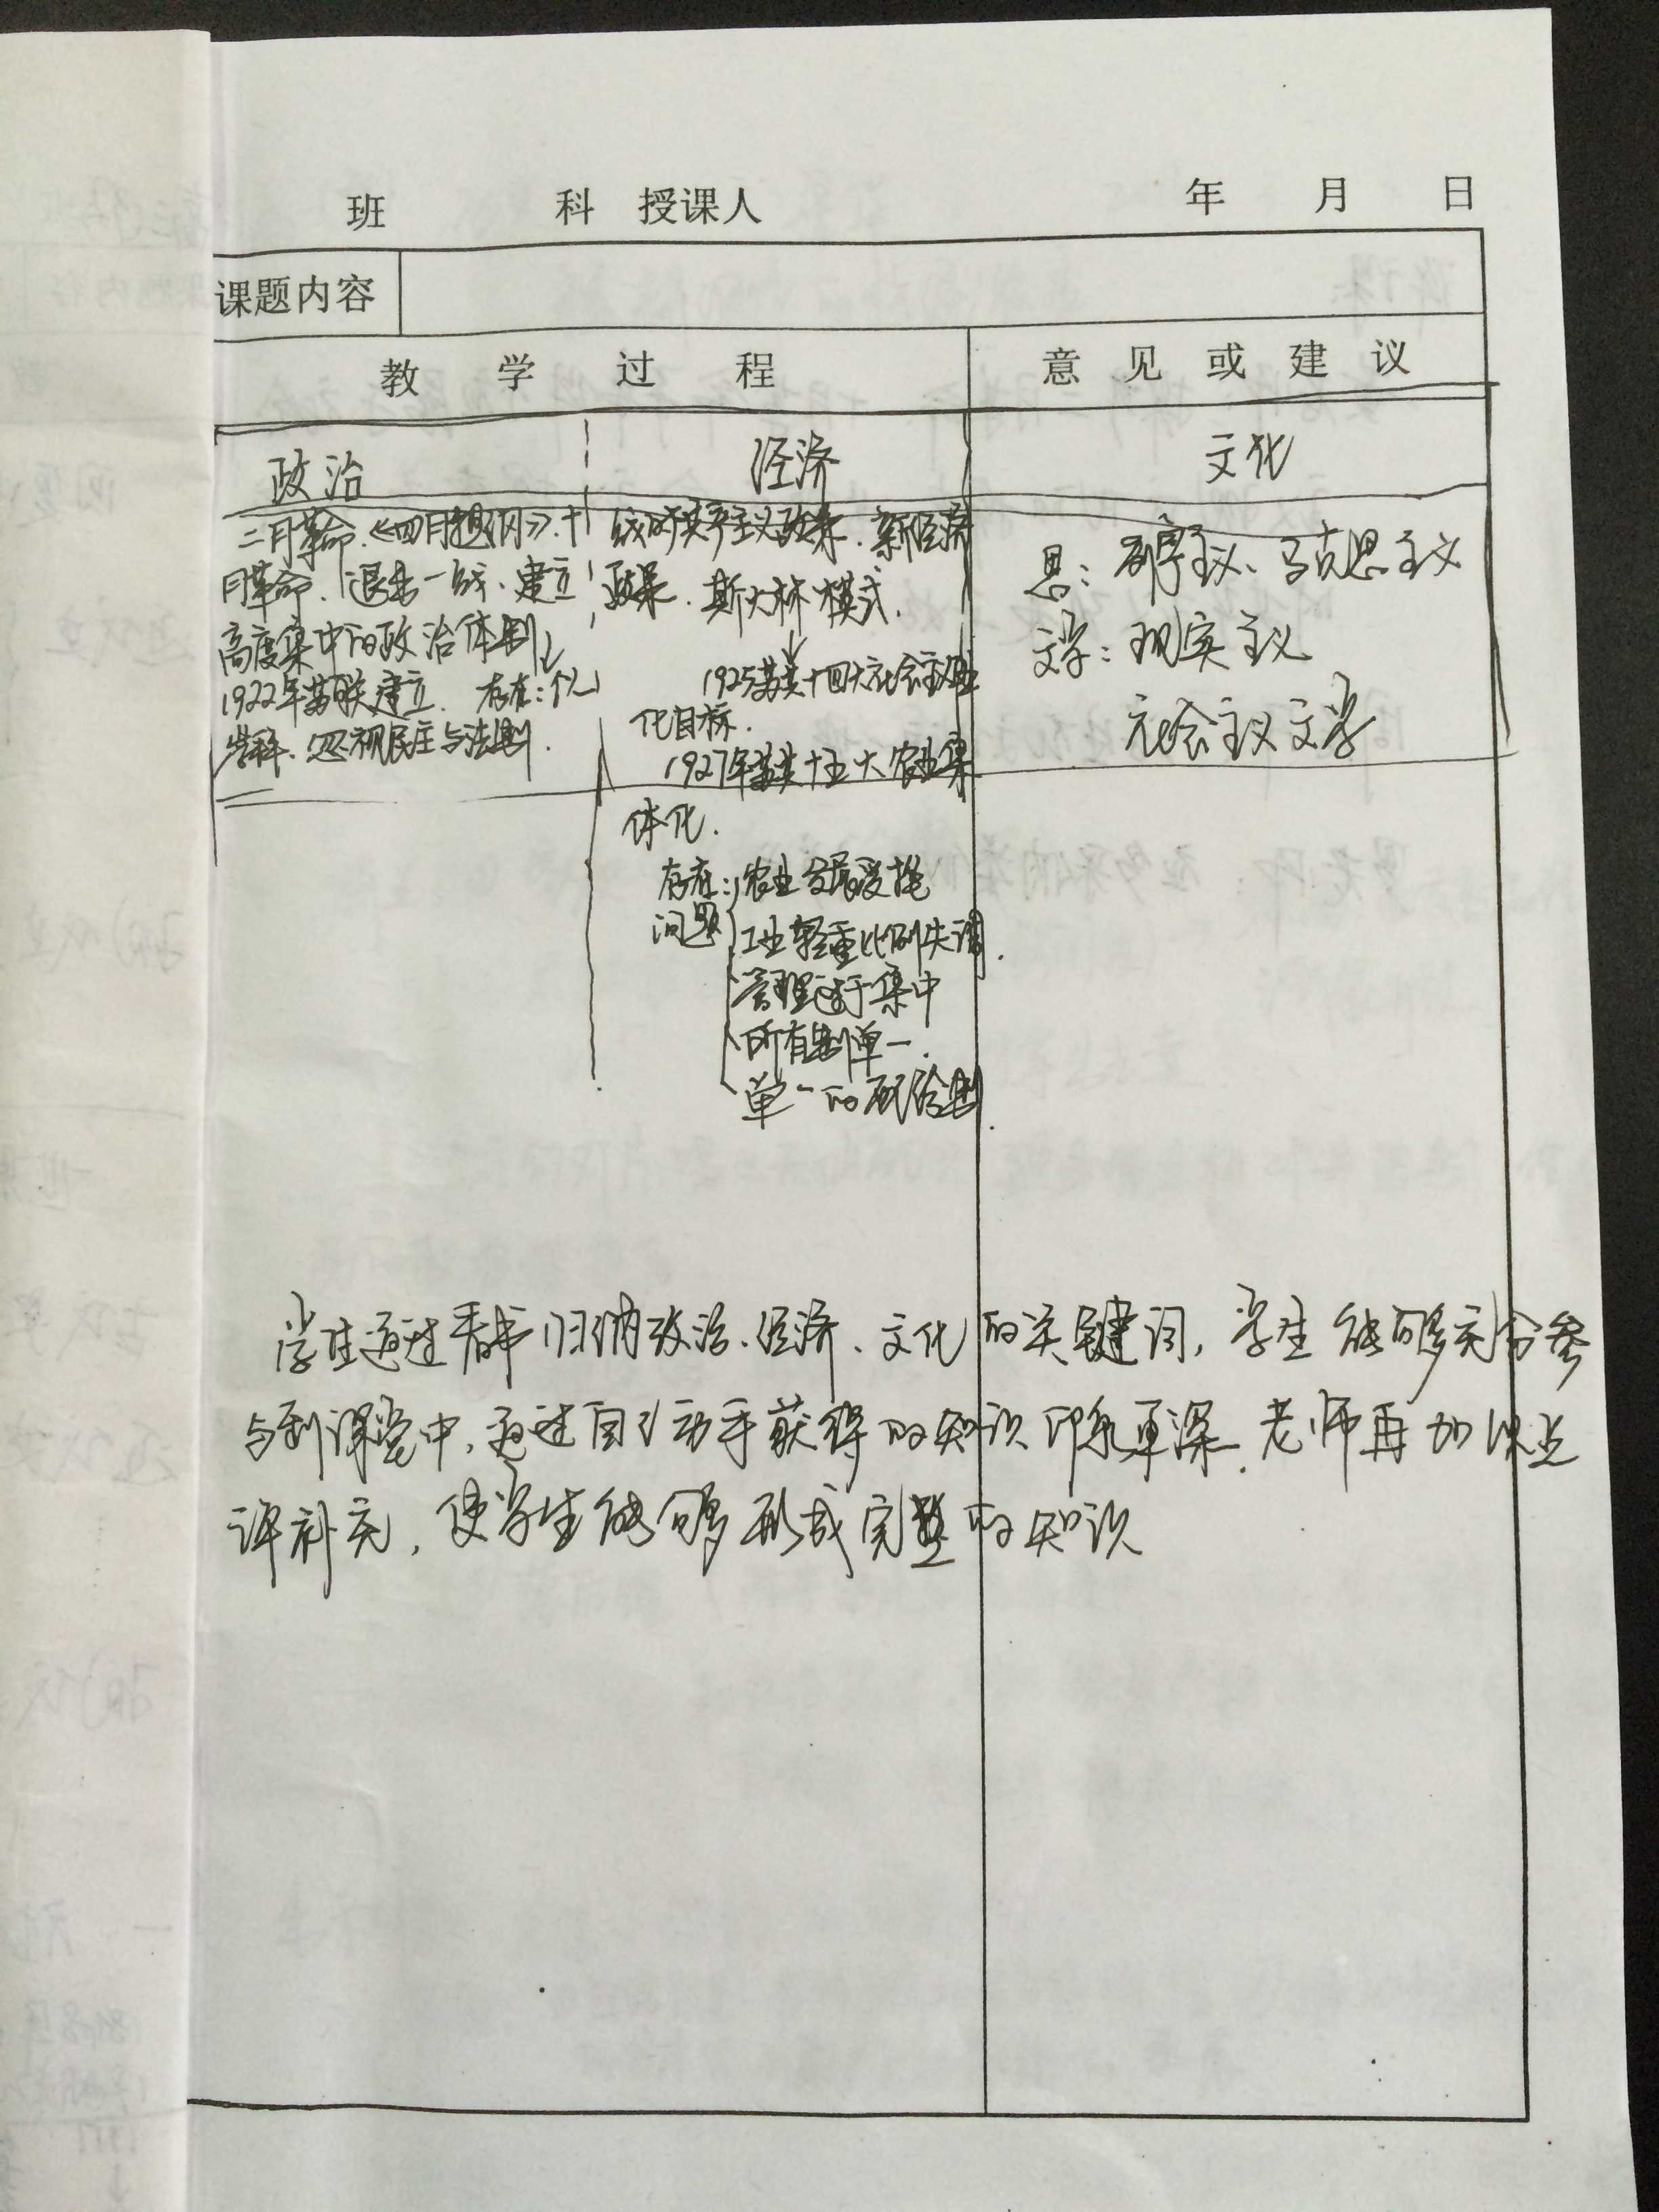 班 科 授课人 年 月 日
课题内容
教 学 过 程 意 见 或 建 议
政治
二月革命、《四月提纲》、十
月革命、退出一战、建立
高度集中的政治体制
1922年苏联建立. 存在:个人
崇拜、忽视民主与法制.
经济
战时共产主义政策. 新经济
政策. 斯大林模式.
1925苏共十四大社会主义工业
化目标.
1927年苏共十五大农业集
体化.
存在: 农业发展受挫
问题 工业轻重比例失调.
管理过于集中
所有制单一.
单一的 配给制.
文化
思: 列宁主义、马克思主义
文学: 现实主义
社会主义文学
学生通过看书归纳政治、经济、文化的关键词, 学生能够充分参
与到课堂中, 通过自己动手获得的知识印象更深. 老师再加以点
评补充, 使学生能够形成完整的知识